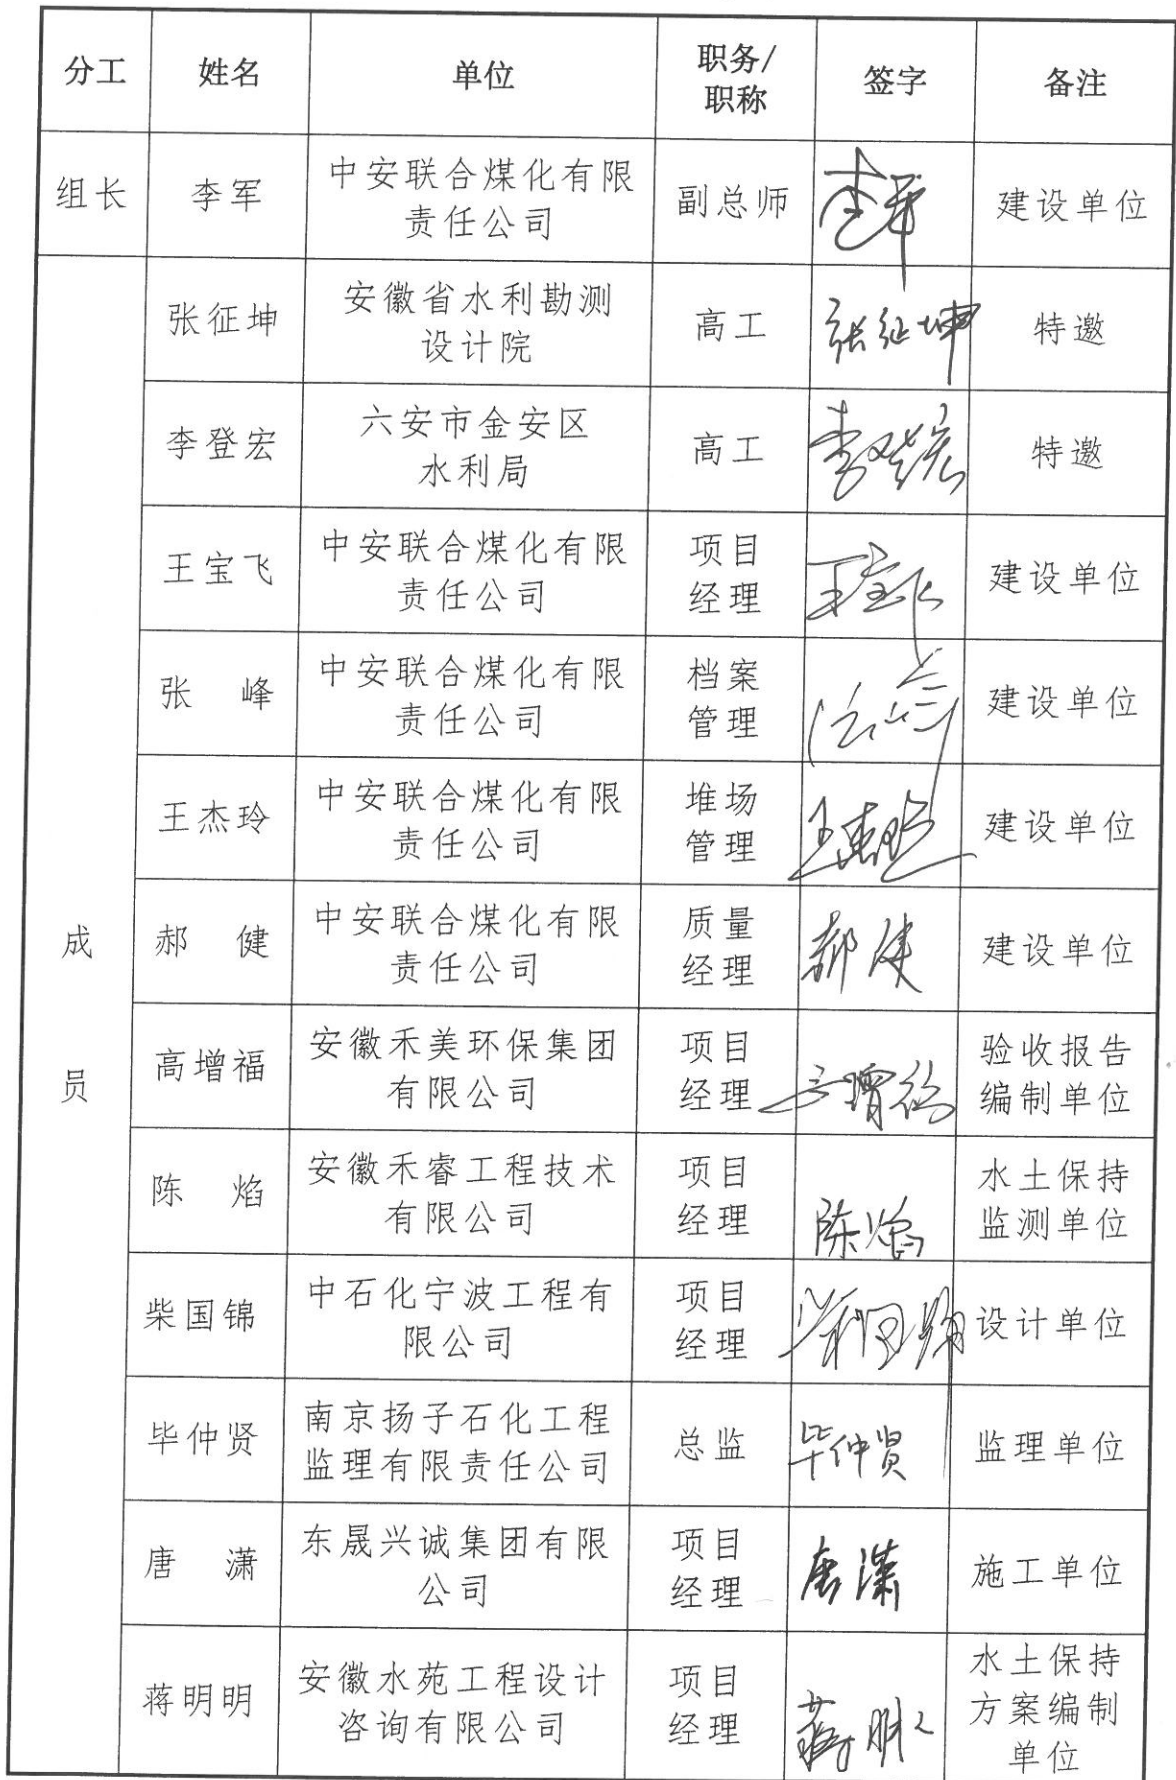 分工 姓名 单位 职务/职称 签字 备注
组长 李军 中安联合煤化有限责任公司 副总师 李军 建设单位
成员
张征坤 安徽省水利勘测设计院 高工 张征坤 特邀
李登宏 六安市金安区水利局 高工 李登宏 特邀
王宝飞 中安联合煤化有限责任公司 项目经理 王宝飞 建设单位
张峰 中安联合煤化有限责任公司 档案管理 张峰 建设单位
王杰玲 中安联合煤化有限责任公司 堆场管理 王杰玲 建设单位
郝健 中安联合煤化有限责任公司 质量经理 郝健 建设单位
高增福 安徽禾美环保集团有限公司 项目经理 高增福 验收报告编制单位
陈焰 安徽禾睿工程技术有限公司 项目经理 陈焰 水土保持监测单位
柴国锦 中石化宁波工程有限公司 项目经理 柴国锦 设计单位
毕仲贤 南京扬子石化工程监理有限责任公司 总监 毕仲贤 监理单位
唐潇 东晟兴诚集团有限公司 项目经理 唐潇 施工单位
蒋明明 安徽水苑工程设计咨询有限公司 项目经理 蒋明明 水土保持方案编制单位